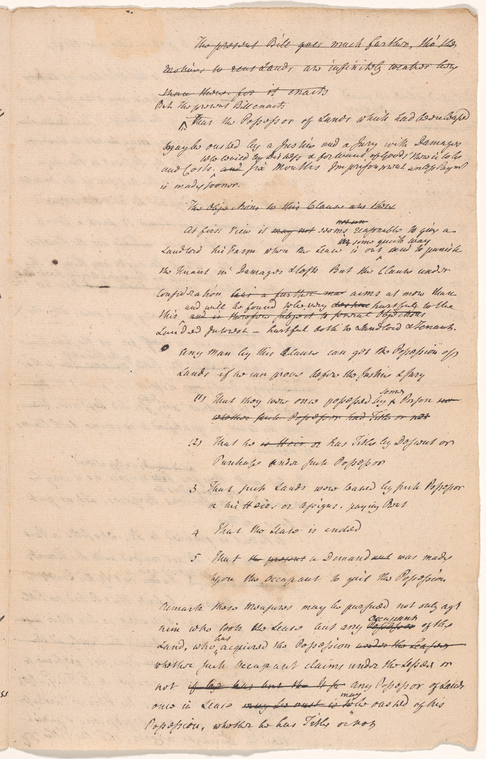 The present Bill goes much farther, tho' the
motives to rent Lands are infinitely weaker here
than there for it enacts
But the present Bill enacts
That the Possessor of Lands which had been leased
may be ousted by a Justice and a Jury with Damages
who levied by distress & for want of Goods there is to be
and Costs, and Six Months Imprisonment unless Paym't
is made sooner.
The Objections to this Clause are these
At first View it may not seems reasonable to give a
Landlord his Farm when the Lease is out and to punish
in some quick way
the Tenant in Damages & Costs But the Clause under
Consideration has a further aims at more than
this and will be found to be very hurtful to the
and is therefore subject to several Objections
Landed Interest — hurtful both to Landlord & Tenant.
Any Man by this Clause can get the Possession of
Lands if he can prove before the Justice & Jury
(1) That they were once possessed by some Person
whether such Possessor had Title or not
(2) That he is Heir or has Title by Descent or
Purchase under such Possessor
3 That such Lands were leased by such Possessor
or his Heirs or Assigns, paying Rent
4 That the Lease is ended
5 That the present a Demand was made
upon the Occupant to quit the Possession
Remark these Measures may be pursued not only ag't
him who took the Lease but any occupant of the
Land, who has acquired the Possession under the Lessee
whether such Occupant claims under the Lessee or
not any Possessor of Lands
once in Lease may be ousted of his
Possession, whether he has Title or not